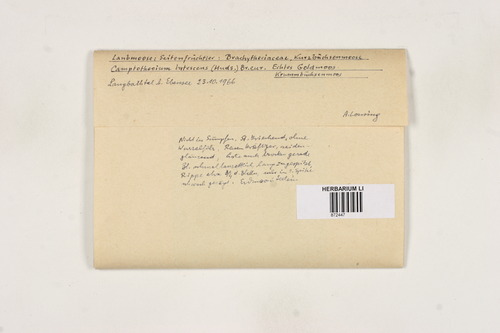 Laubmoose: Seitenfrüchtler: Brachytheciaceae, Kurzbüchsenmoose
Camptothecium lutescens (Huds.) Br. eur. Echtes Goldmoos
Krummbüchsenmoos
Langballital b. 23.10.1966
A. Lonsing
Nicht in Sümpfen, St. kriechend, ohne
Wurzelfilz. Rasen kräftiger, seiden-
glänzend. Äste auch trocken gerade.
Bl. schmal lanzettlich, lang zugespitzt
Rippe etwa 3/4 d.
schwach gesägt.
HERBARIUM LI
872447